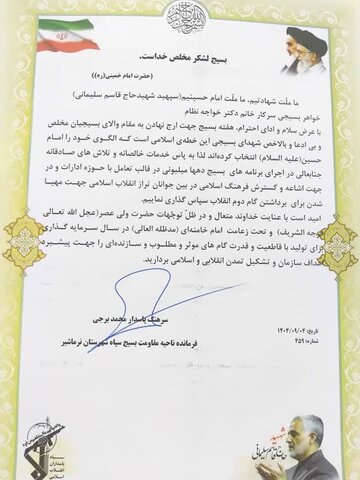 بسیج لشکر مخلص خداست.
(حضرت امام خمینی(ره))
ما ملّت شهادتیم، ما ملّت امام حسینیم(سپهبد شهیدحاج قاسم سلیمانی)
خواهر بسیجی سرکار خانم دکتر خواجه نظام
با عرض سلام و ادای احترام، هفته بسیج جهت ارج نهادن به مقام والای بسیجیان مخلص
و بی ادعا و بالاخص شهدای بسیجی این خطه‌ی اسلامی است که الگوی خود را امام
حسین(علیه السلام) انتخاب کرده‌اند لذا به پاس خدمات خالصانه و تلاش های صادقانه
جنابعالی در اجرای برنامه های بسیج دهها میلیونی در قالب تعامل با حوزه ادارات و در
جهت اشاعه و گسترش فرهنگ اسلامی در بین جوانان تراز انقلاب اسلامی جهت مهیا
شدن برای برداشتن گام دوم انقلاب سپاس گذاری نماییم.
امید است با عنایت خداوند متعال و در ظلّ توجّهات حضرت ولی عصر(عجل الله تعالی
وجه الشریف) و تحت زعامت امام خامنه‌ای (مدظله العالی) در سال سرمایه گذاری
برای تولید با قاطعیت و قدرت گام های موثر و مطلوب و سازنده‌ای را جهت پیشبرد
هداف سازمان و تشکیل تمدن انقلابی و اسلامی بردارید.
سرهنگ پاسدار محمد برجی
فرمانده ناحیه مقاومت بسیج سپاه شهرستان نرماشیر
تاریخ: ۱۴۰۴/۰۹/۰۴
شماره: ۴۵۹
سپاه
پاسداران
انقلاب
اسلامی
شهید
حاج قاسم سلیمانی